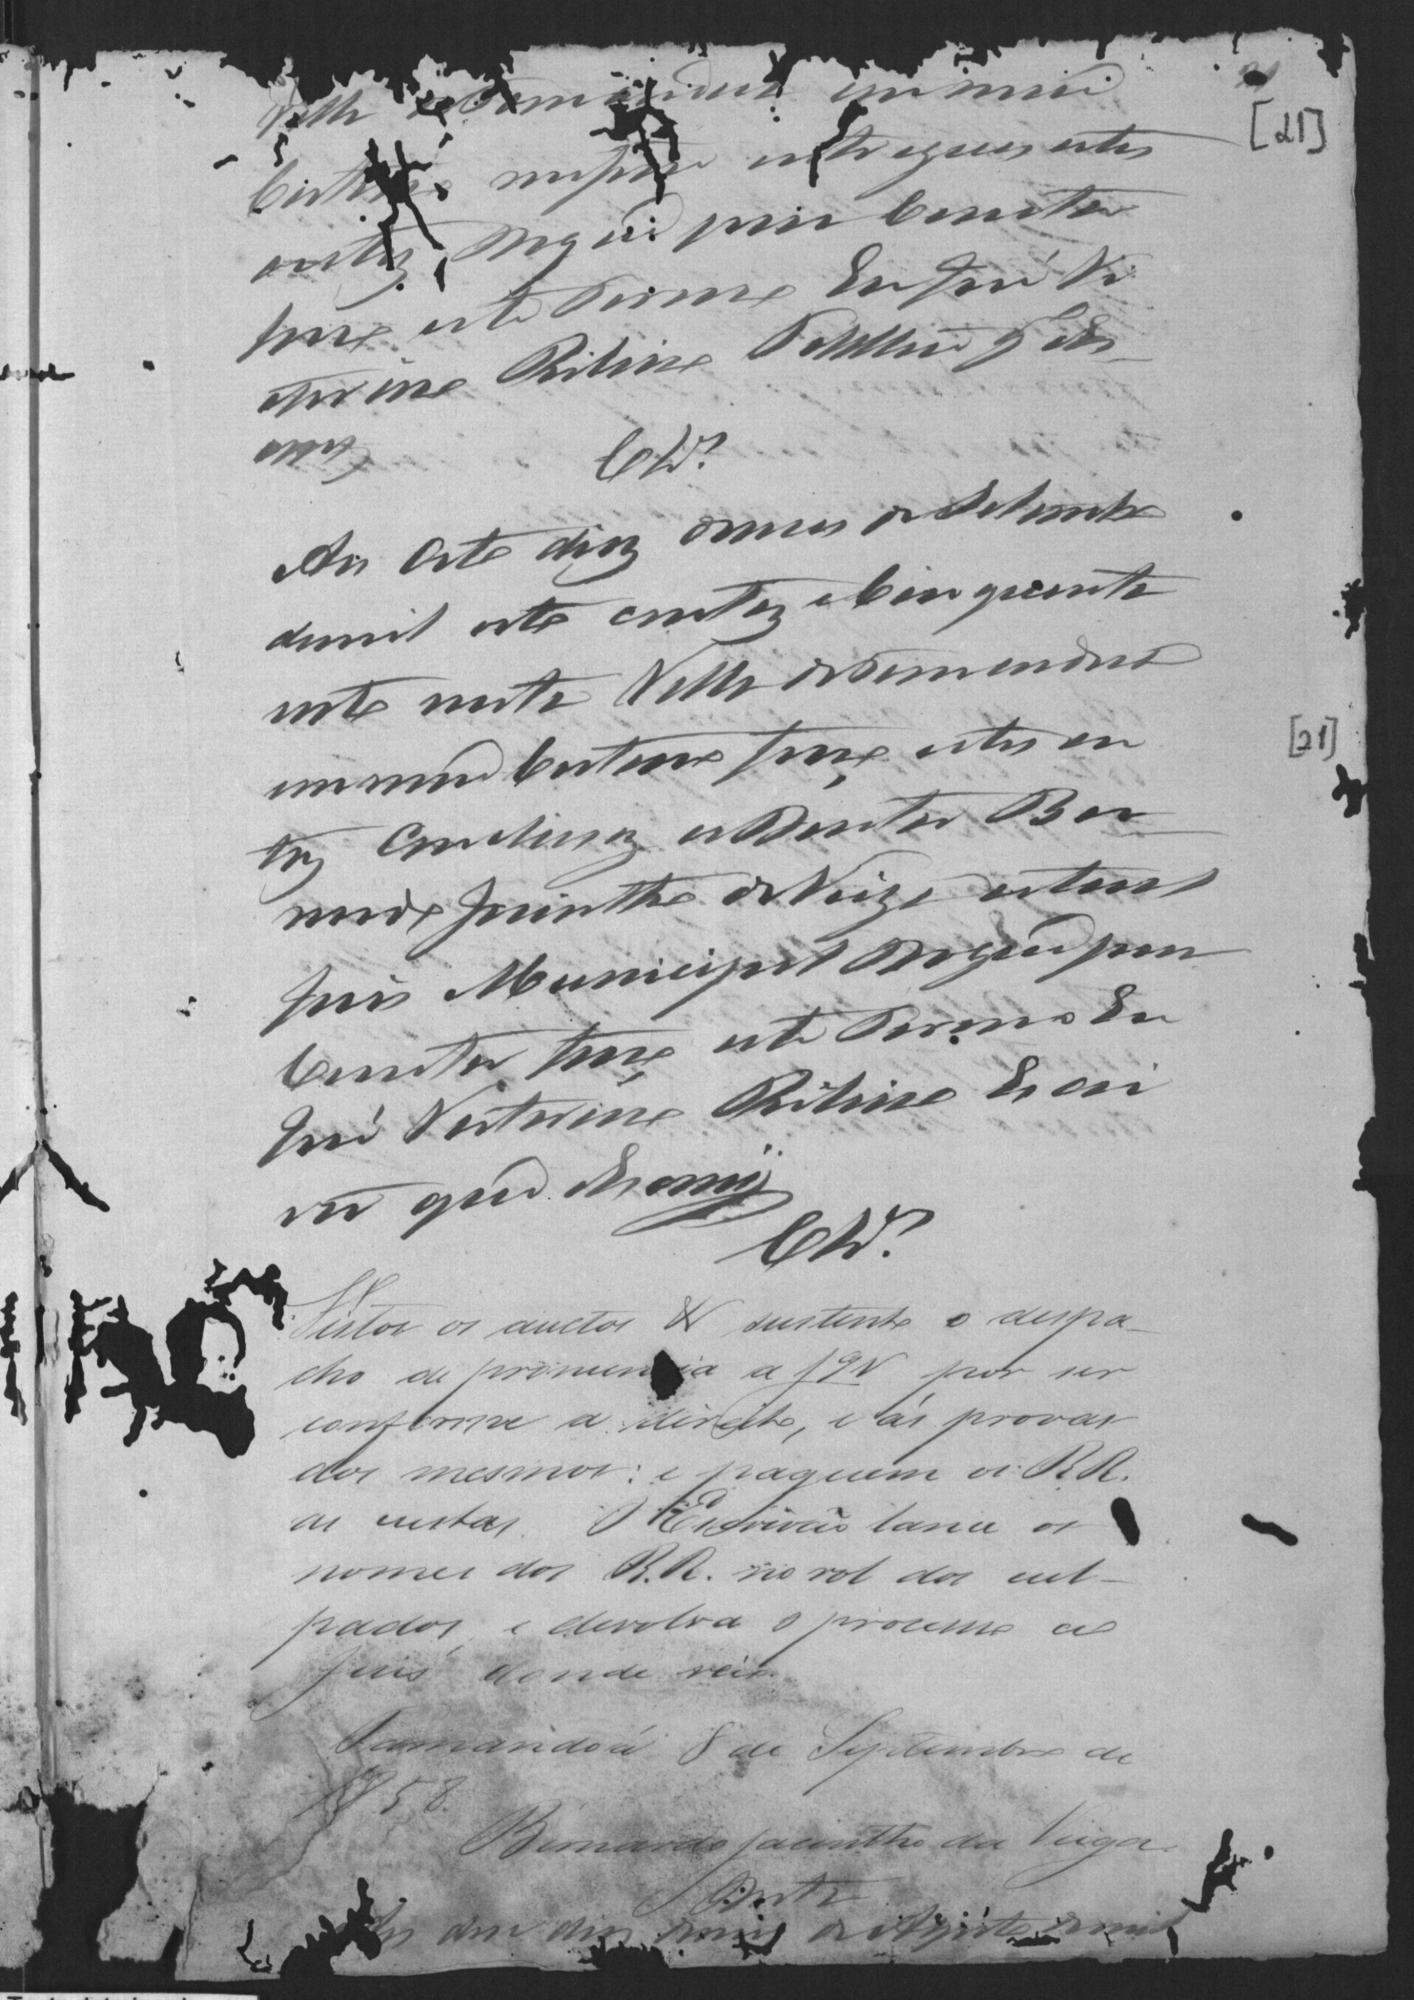 [21]
Villa de Tamanduá em meu
Cartorio me forão entregues estes
autos do que para constar
faço este termo Eu José Vi
ctorino Ribeiro
Clz.º
Aos oito dias do mes de Setembro
de mil oito centos e Cincoenta
oito nesta Villa de Tamanduá
em meu Cartorio faço estes au
tos Conclusos ao Doutor Ber
nardo Jacintho da Veiga actual
Juis Municipal do que para
Constar faço este termo Eu
José Victorino Ribeiro Escri
vão que Escrevi
[21]
Clz.º
Vistos os auctos & sustento o despa-
cho de pronuncia a f 9 V por ser
conforme a direito, e ás provas
dos mesmos: e paguem os R.R.
as custas. O Escrivão lance os
nomes dos R.R. no rol dos cul-
pados, e devolva o processo ao
Juis donde veio.
Tamanduá 8 de Septembro de
1858.
Bernardo Jacintho da Veiga.
Data
Aos dez dias do mes de mil